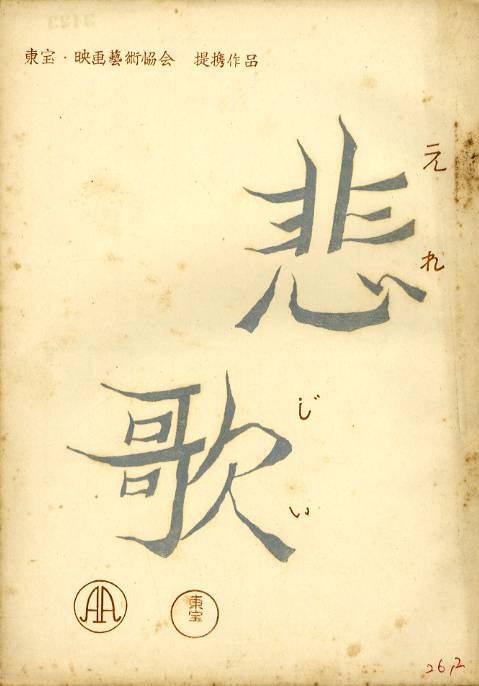 東宝・映画藝術協会 提携作品
悲歌
えれじい
AA
東宝
26,2